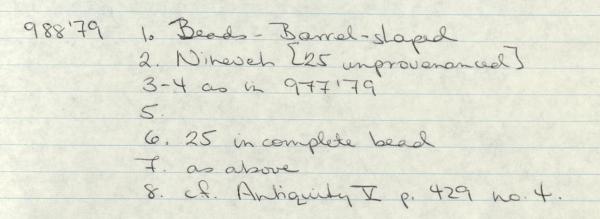 988'79 1. Beads - Barrel-shaped
2. Nineveh [25 unprovenanced]
3-4 as in 977'79
5.
6. 25 incomplete bead
7. as above
8. cf. Antiquity V p. 429 no. 4.